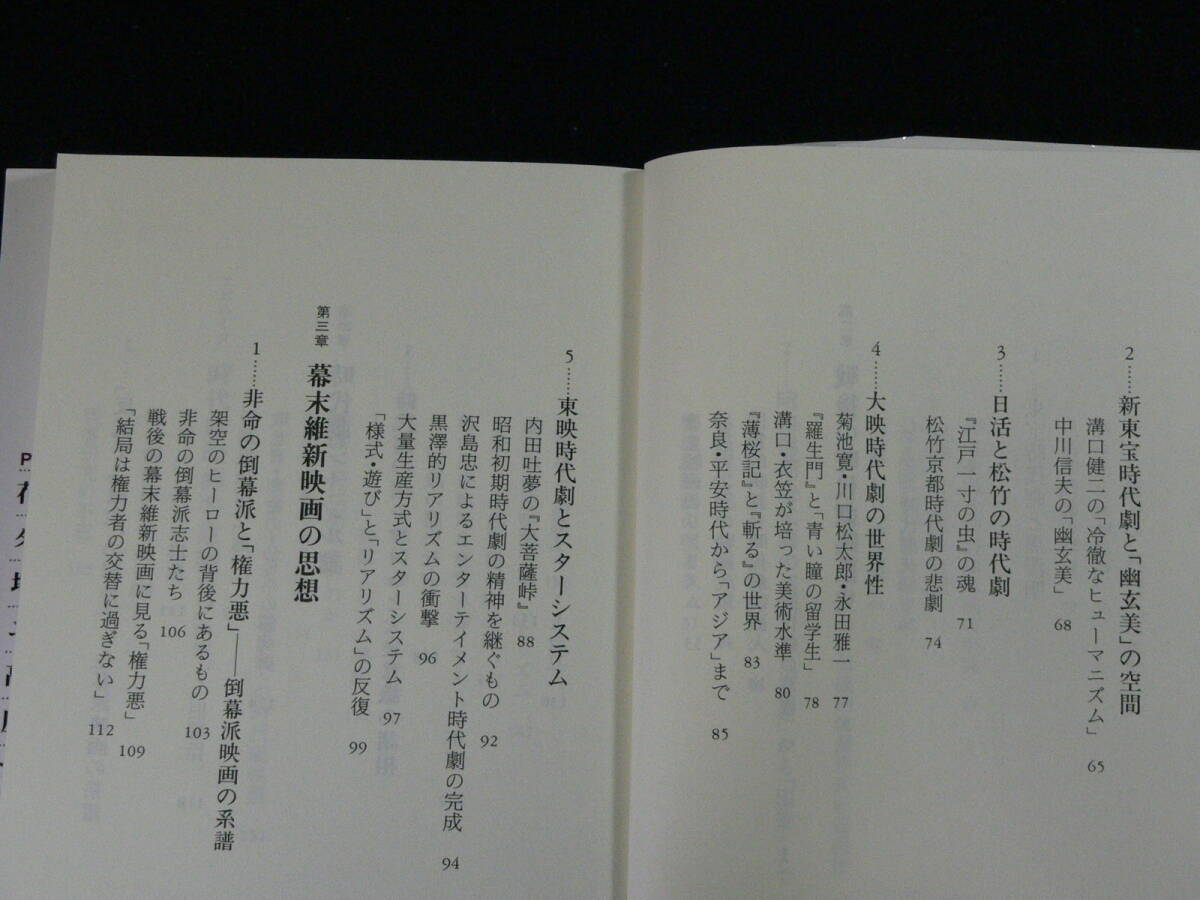 2……新東宝時代劇と「幽玄美」の空間
溝口健二の「冷徹なヒューマニズム」 65
中川信夫の「幽玄美」 68
3……日活と松竹の時代劇
『江戸一寸の虫』の魂 71
松竹京都時代劇の悲劇 74
4……大映時代劇の世界性
菊池寛・川口松太郎・永田雅一 77
『羅生門』と「青い瞳の留学生」 78
溝口・衣笠が培った美術水準 80
『薄桜記』と『斬る』の世界 83
奈良・平安時代から「アジア」まで 85
5……東映時代劇とスターシステム
内田吐夢の『大菩薩峠』 88
昭和初期時代劇の精神を継ぐもの 92
沢島忠によるエンターテイメント時代劇の完成 94
黒澤的リアリズムの衝撃 96
大量生産方式とスターシステム 97
「様式・遊び」と「リアリズム」の反復 99
第三章 幕末維新映画の思想
1……非命の倒幕派と「権力悪」――倒幕派映画の系譜
架空のヒーローの背後にあるもの 103
非命の倒幕派志士たち 106
戦後の幕末維新映画に見る「権力悪」 109
「結局は権力者の交替に過ぎない」 112